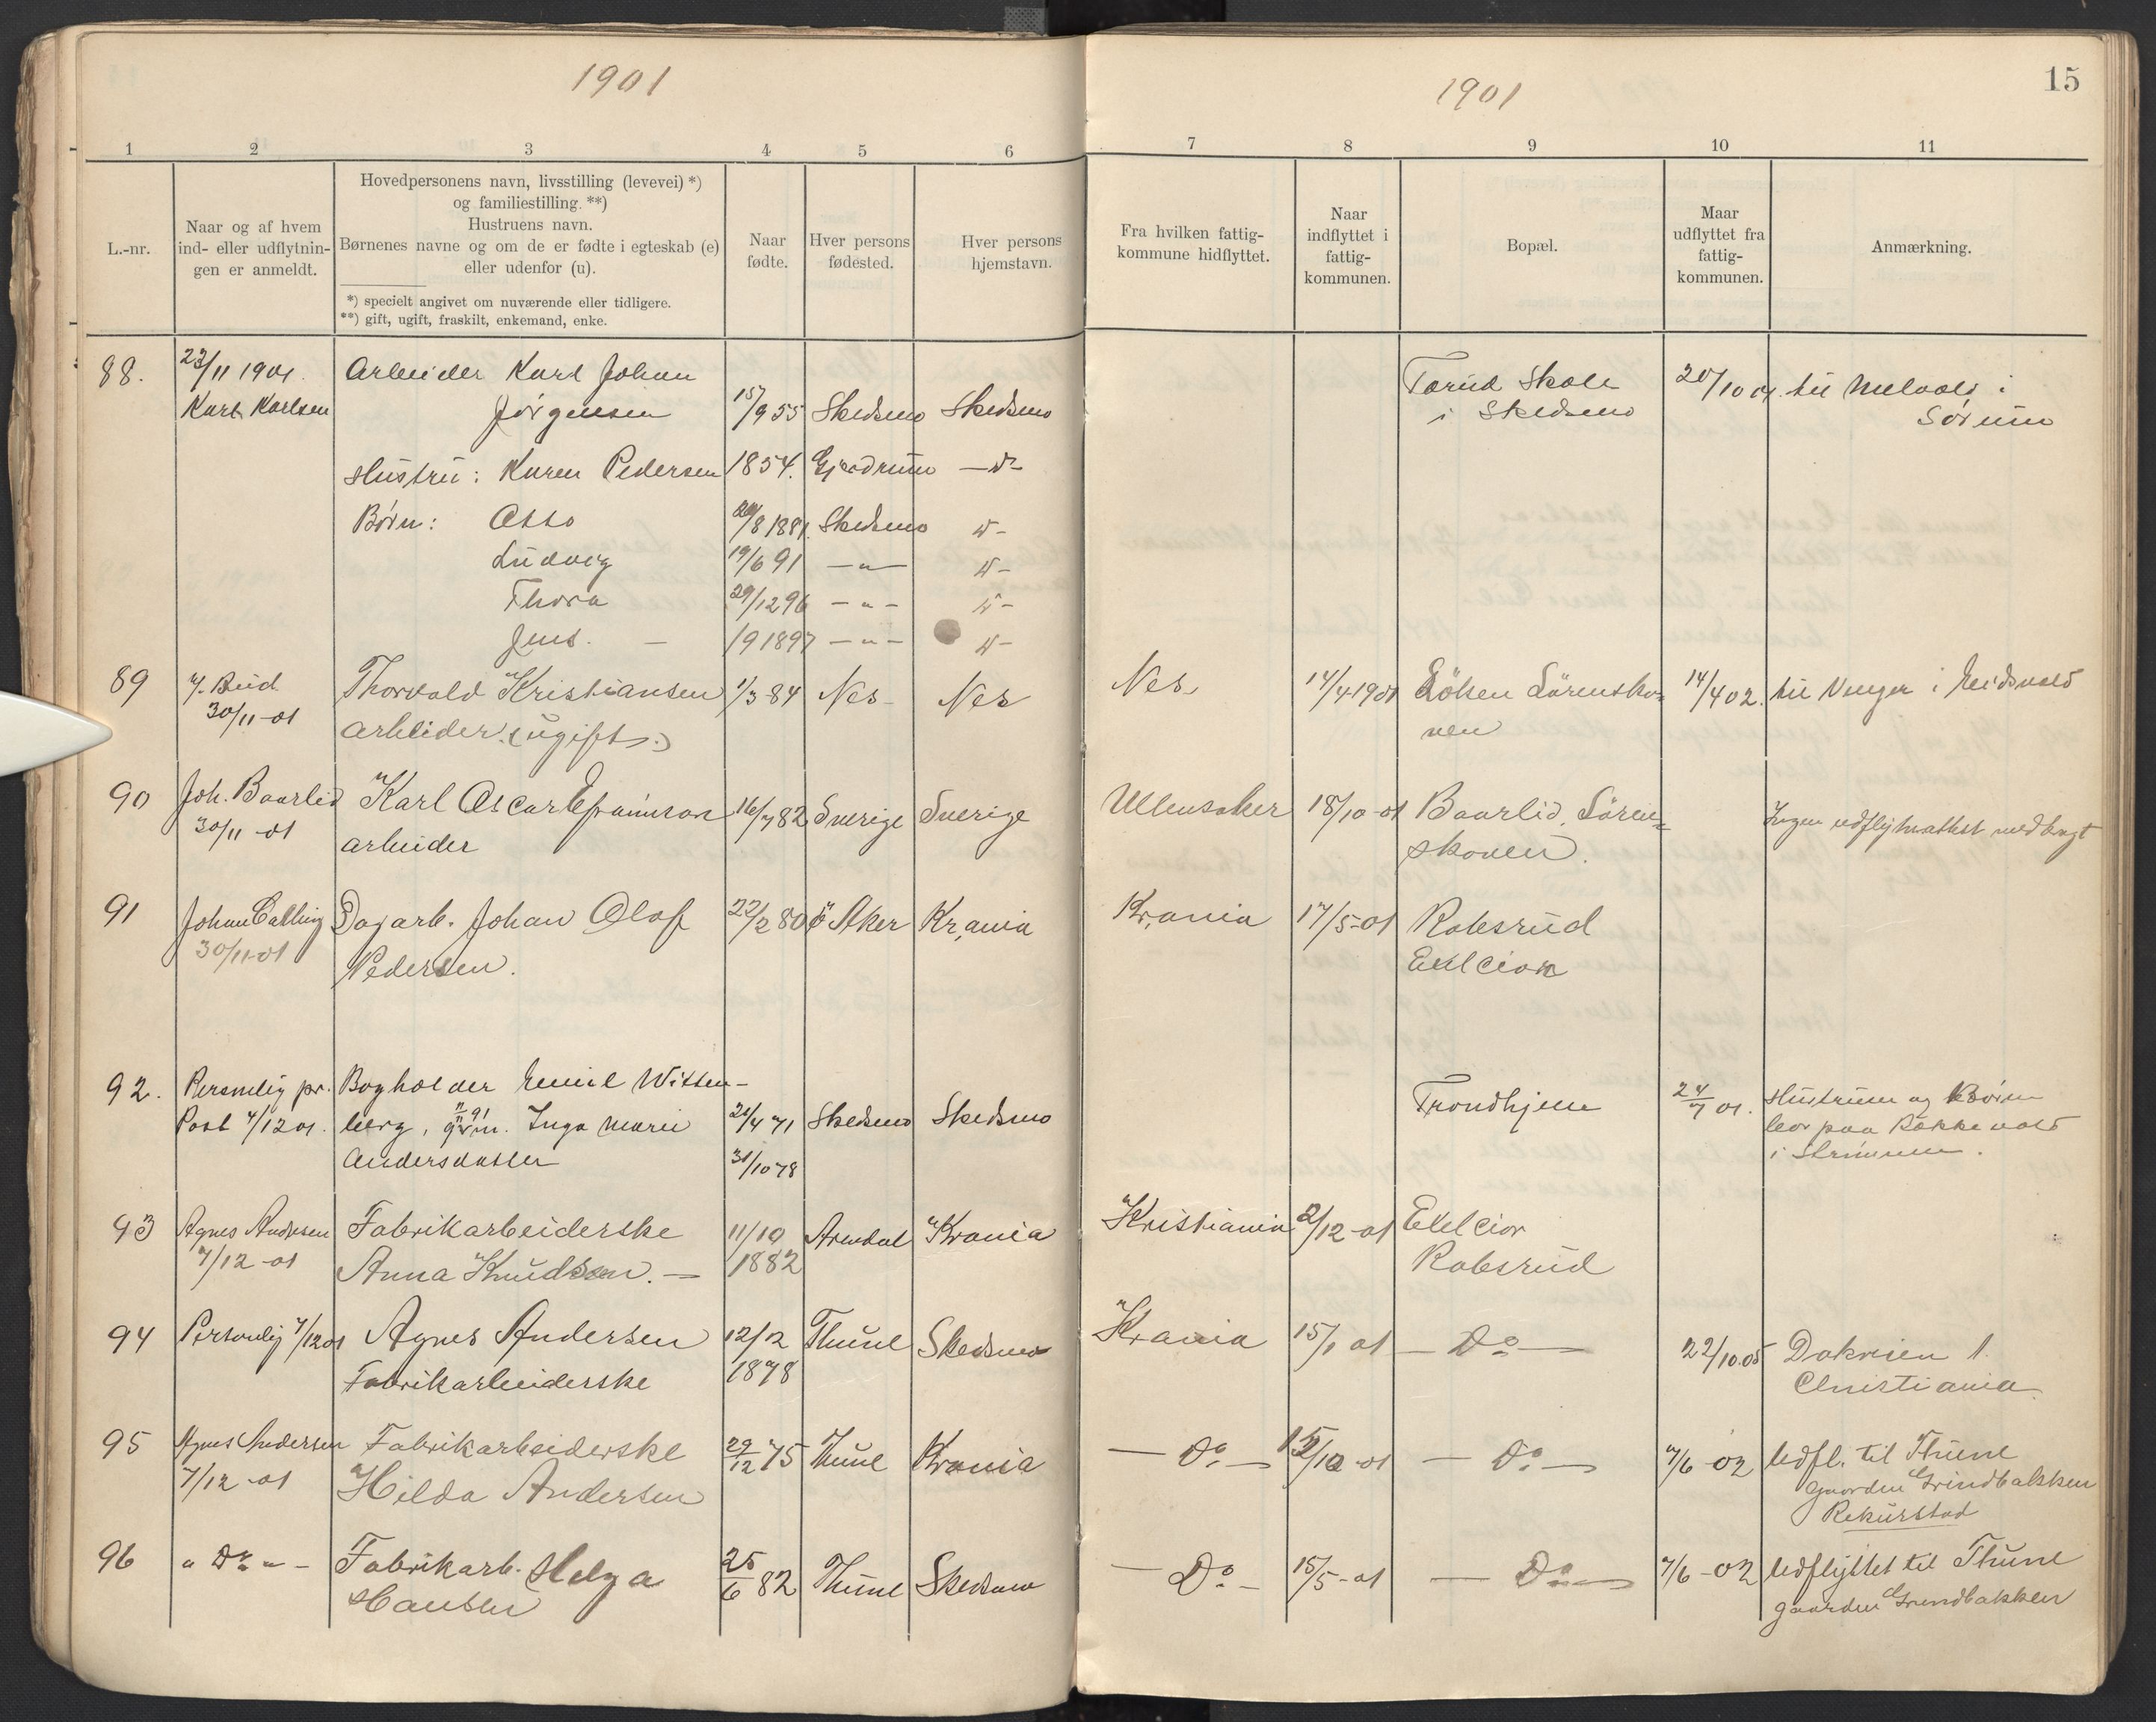 1901
1901
15
1 2 3 4 5 6 7 8 9 10 11
L.-nr.
Naar og af hvem
ind- eller udflytnin-
gen er anmeldt.
Hovedpersonens navn, livsstilling (levevei) *)
og familiestilling. **)
Hustruens navn.
Børnenes navne og om de er fødte i egteskab (e)
eller udenfor (u).
*) specielt angivet om nuværende eller tidligere.
**) gift, ugift, fraskilt, enkemand, enke.
Naar
fødte.
Hver persons
fødested.
Hver persons
hjemstavn.
Fra hvilken fattig-
kommune hidflyttet.
Naar
indflyttet i
fattig-
kommunen.
Bopæl.
Maar
udflyttet fra
fattig-
kommunen.
Anmærkning.
88. 23/11 1901. Arbeider Karl Johan Torud Skole 20/10 01. til Melvold i
Karl Karlsen Jörgensen 15/9 55 Skedsmo Skedsmo i Skedsmo Sörum
Hustru: Karen Pedersen 1854. Gjerdrum — do
Børn: Otto /8 1881. Skedsmo do -
Ludvig 19/6 91 — " — do -
Thora 29/12 96 - " - do -
Jens. — /9 1897 — " — do -
89 30/11-01 Thorvald Kristiansen 1/3-84 Nes Nes Nes 14/4-1901 Löken Lörensko= 14/4 02. til Venger i Eidsvold
Arbeider (ugift.) ven
90 Joh. Baarlid Karl Oscar 16/7 82 Sverige Sverige Ullensaker 18/10-01 Baarlid, Lören=
30/11-01 arbeider skoven. Ingen udflytnattest medbragt
91 Johan Dagarb. Johan Olof 22/2 80 Ö Aker Kr,ania Kr,ania 17/5-01 Robsrud
30/11-01 Pedersen. Exelcior
92. Personlig pr. Bogholder Emil Witten- Trondhjem 24/7 01. Hustruen og Børn
Post 4/12 01. berg, Inga Marie 21/4 71 Skedsmo Skedsmo bor paa Rökkevold
Andersdatter 31/10 78 i Strömmen.
93 Agnes Andersen Fabrikarbeiderske 11/10 Arendal Krania Kristiania 2/12-01 Exelcior
7/12-01 Anna Knudsen. — 1882 Robsrud
94 Personlig 7/12 01 Agnes Andersen 12/12 Thune Skedsmo Krania 15/1 01 — Do — 22/10.05 Dokveien 1.
Fabrikarbeiderske 1878 Christiania
95 Agnes Andersen Fabrikarbeiderske 29/12 75 Thune Krania — Do — /10-01 — Do — 7/6-02 Udfl. til Thune
7/12-01 Hilda Andersen gaarden Grindbakken
Rakkestad
96 " Do " - Fabrikarb. Helga 25/6 82 Thune Skedsmo — Do — 15/5-01 — Do — 7/6-02 Udflyttet til Thune
Hansen gaarden Grindbakken